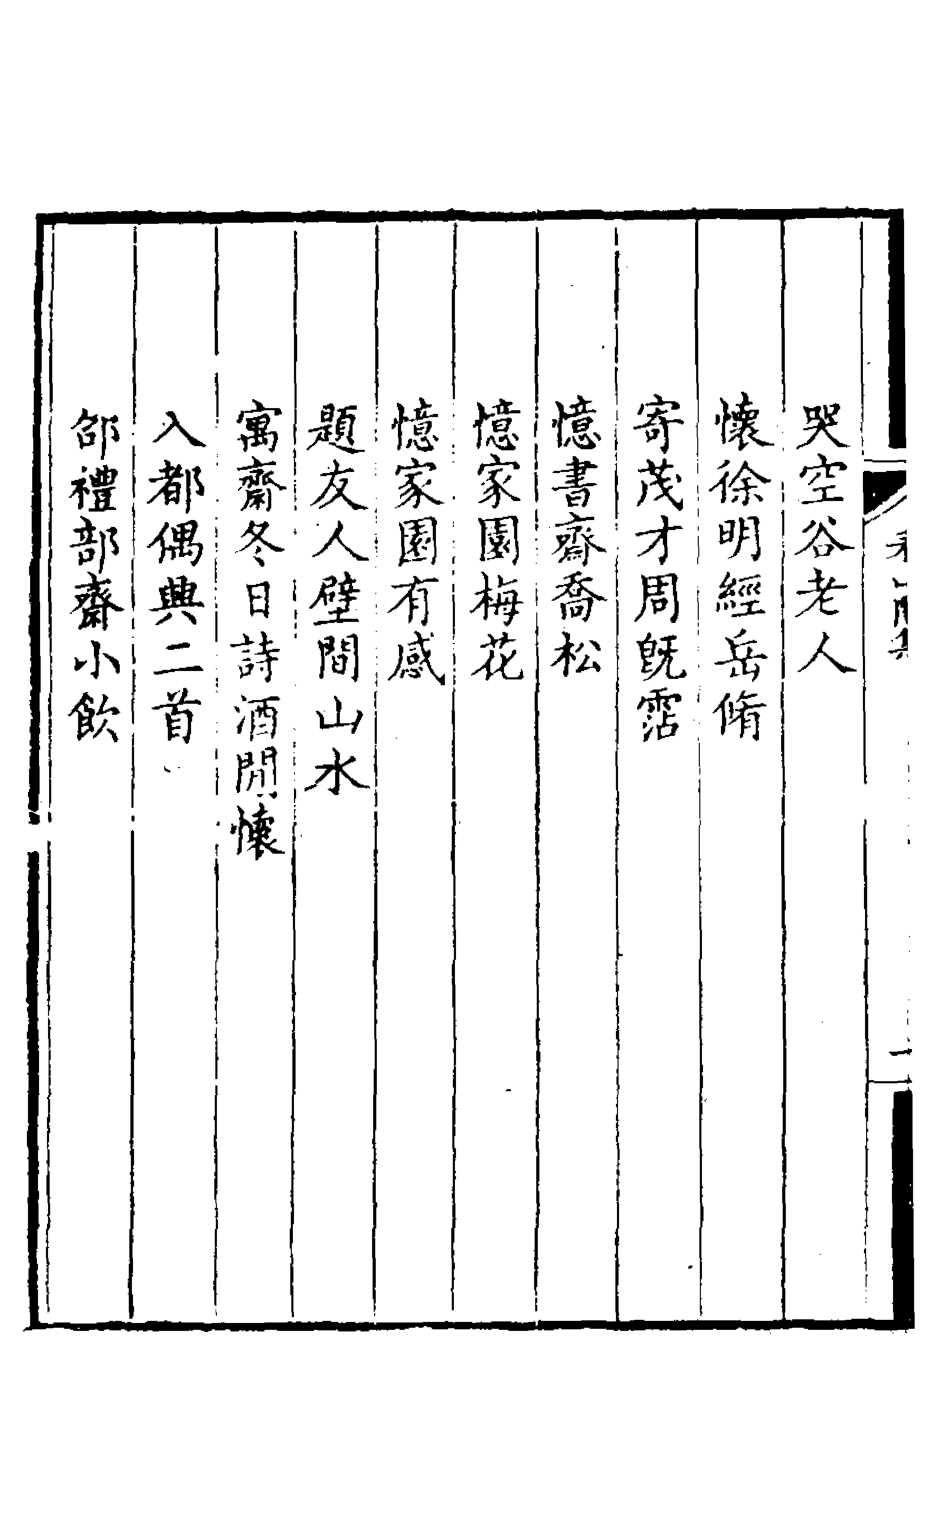 哭空谷老人
懷徐明經岳脩
寄茂才周旣霑
憶書齋喬松
憶家園梅花
憶家園有感
題友人壁間山水
寓齋冬日詩酒閒懷
入都偶興二首
邵禮部齋小飲
一